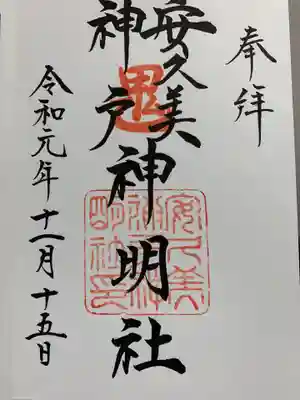 奉拝
安久美
神戸神明社
令和元年十一月十五日
安久美
神戸神
明社印